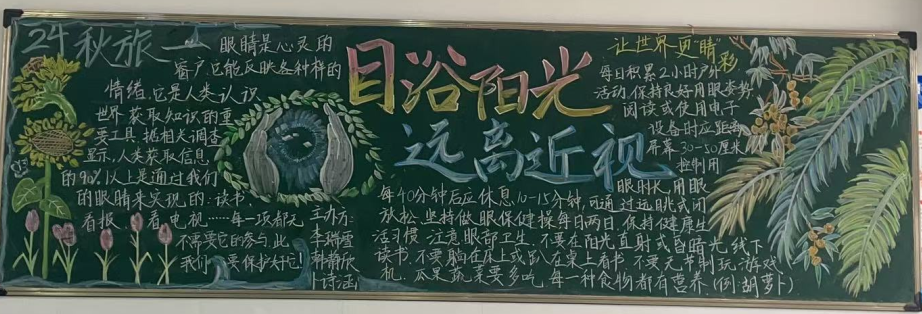 24秋旅一
眼睛是心灵的
窗户,它能反映各种样的
情绪,它是人类认识
世界获取知识的重
要工具,据相关调查
显示,人类获取信息
的90%以上是通过我们
的眼睛来实现的:读书、
看报、看电视……每一项都无
不需要它的参与,此
我们 要保护好它!
主办方:
李 雪
韩静欣
卜诗涵
目浴阳光
远离近视
让世界更"睛"彩
每日积累2小时户外
活动,保持良好用眼姿势
阅读或使用电子
设备时应距离
屏幕30-50厘米
控制用
眼时长,用眼
每40分钟后应休息10-15分钟,可通过远眺或闭
放松,坚持做眼保健操每日两日,保持健康生
活习惯 注意眼部卫生,不要在阳光直射或昏暗光线下
读书,不要躺在床上或趴在桌上看书 不要无节制玩游戏
机,瓜果蔬菜要多吃,每一种食物都有营养(例:胡萝卜)